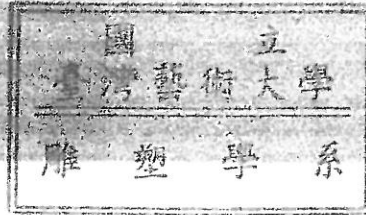 國立
臺灣藝術大學
雕塑學系